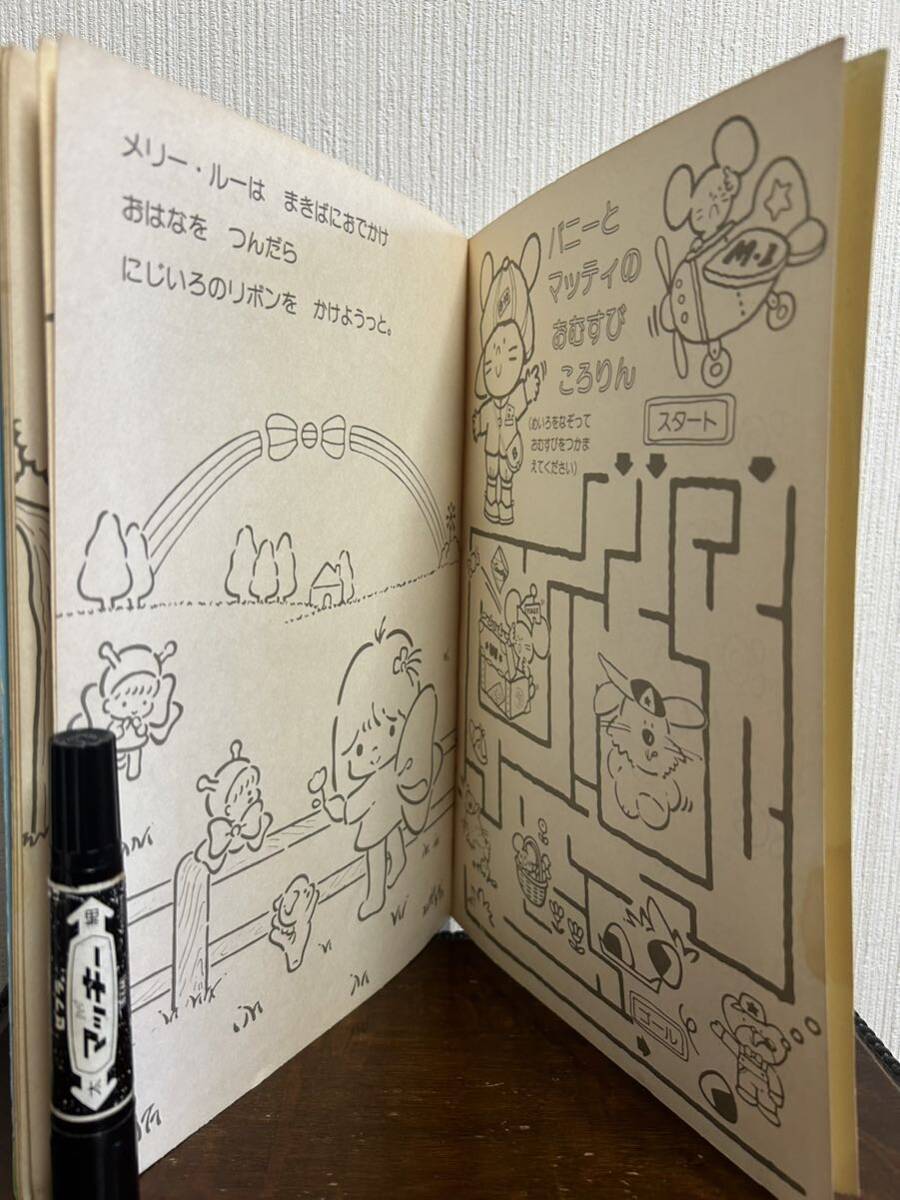 メリー・ルーは まきばにおでかけ
おはなを つんだら
にじいろのリボンを かけようっと。
バニーと
マッティの
おむすび
ころりん
(めいろをなぞって
おむすびをつかま
えてください)
M・1
スタート
ゴール
黒
ゼブラ
マッキー
太